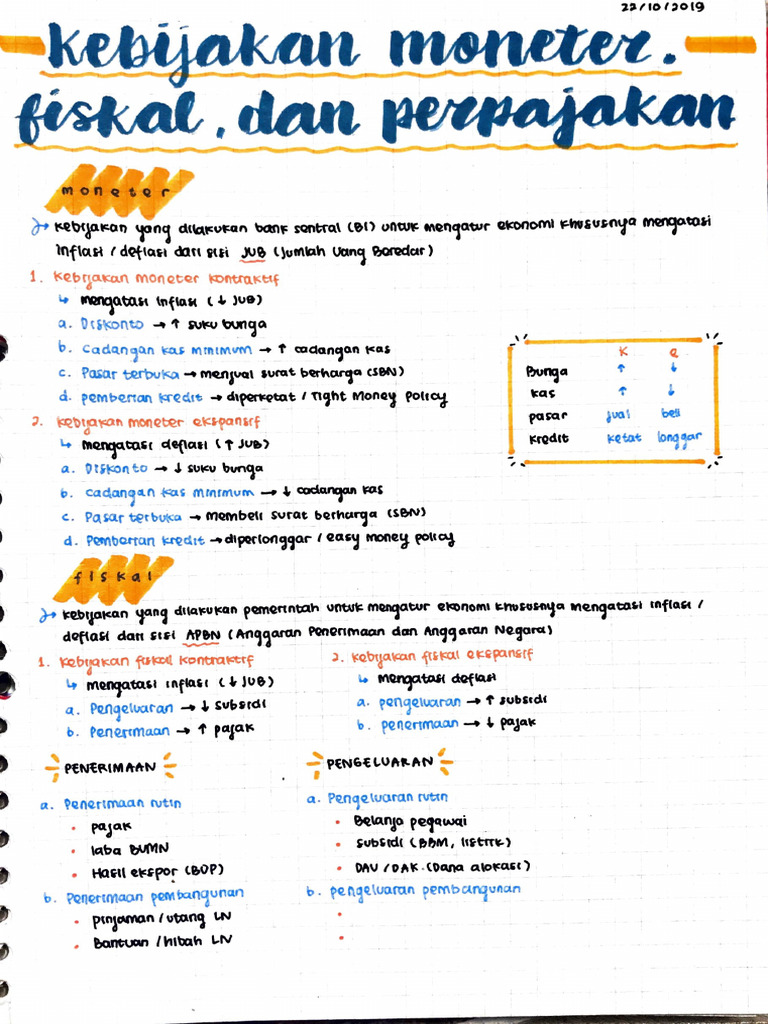 22/10/2019
kebijakan moneter,
fiskal, dan perpajakan
moneter
kebijakan yang dilakukan bank sentral (BI) untuk mengatur ekonomi khususnya mengatasi
inflasi / deflasi dari sisi JUB (Jumlah Uang Beredar)
1. kebijakan moneter kontraktif
↳ mengatasi inflasi (↓ JUB)
a. Diskonto → ↑ suku bunga
b. cadangan kas minimum → ↑ cadangan kas
c. Pasar terbuka → menjual surat berharga (SBN)
d. pemberian kredit → diperketat / Tight Money Policy
2. kebijakan moneter ekspansif
↳ mengatasi deflasi (↑ JUB)
a. Diskonto → ↓ suku bunga
b. cadangan kas minimum → ↓ cadangan kas
c. Pasar terbuka → membeli surat berharga (SBN)
d. Pemberian kredit → diperlonggar / easy money policy
K e
Bunga ↑ ↓
kas ↑ ↓
pasar jual beli
kredit ketat longgar
fiskal
kebijakan yang dilakukan pemerintah untuk mengatur ekonomi khususnya mengatasi inflasi /
deflasi dari sisi APBN (Anggaran Penerimaan dan Anggaran Negara)
1. kebijakan fiskal kontraktif
↳ mengatasi inflasi (↓ JUB)
a. Pengeluaran → ↓ subsidi
b. Penerimaan → ↑ pajak
2. kebijakan fiskal ekspansif
↳ mengatasi deflasi
a. pengeluaran → ↑ subsidi
b. penerimaan → ↓ pajak
PENERIMAAN
a. Penerimaan rutin
• pajak
• laba BUMN
• Hasil ekspor (BOP)
b. Penerimaan pembangunan
• pinjaman / utang LN
• Bantuan / hibah LN
PENGELUARAN
a. Pengeluaran rutin
• Belanja pegawai
• subsidi (BBM, listrik)
• DAU / DAK (Dana alokasi)
b. pengeluaran pembangunan